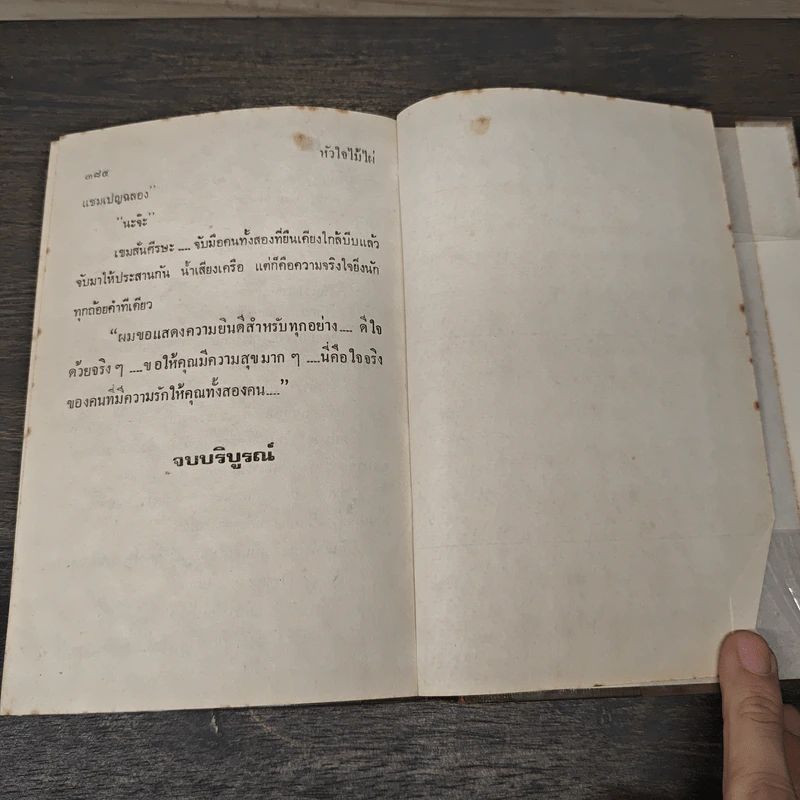 ๓๘๕
หัวใจไม้ไผ่
แชมเปญฉลอง”
“นะจ๊ะ”
เขมสั่นศีรษะ .... จับมือคนทั้งสองที่ยืนเคียงใกล้บีบแล้ว
จับมาให้ประสานกัน น้ำเสียงเครือ แต่ก็คือความจริงใจยิ่งนัก
ทุกถ้อยคำทีเดียว
“ผมขอแสดงความยินดีสำหรับทุกอย่าง.... ดีใจ
ด้วยจริง ๆ ....ขอให้คุณมีความสุขมาก ๆ ....นี่คือใจจริง
ของคนที่มีความรักให้คุณทั้งสองคน....”
จบบริบูรณ์